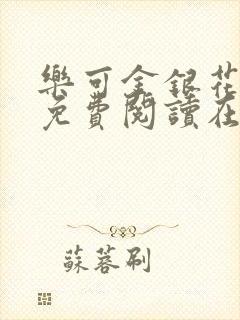 樂可金銀花
免費閱讀在
蘇蓉刷